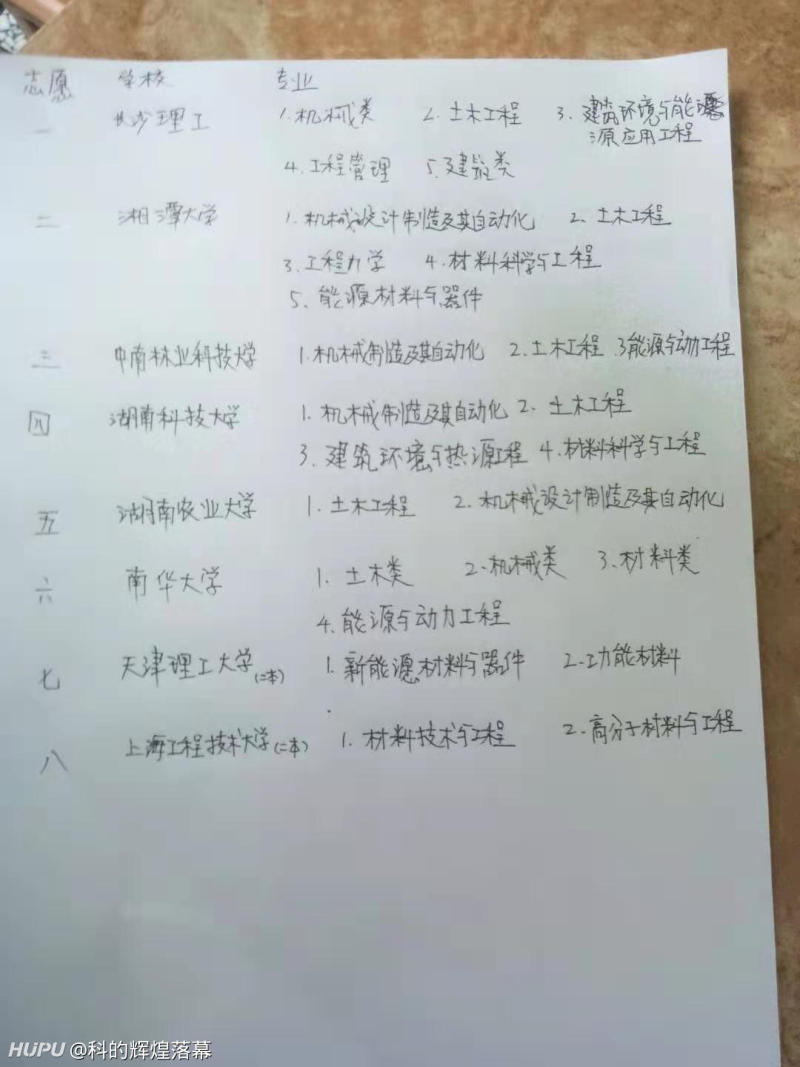 志愿 学校 专业
一 长沙理工 1.机械类 2.土木工程 3.建筑环境与能源
源应用工程
4.工程管理 5.建筑类
二 湘潭大学 1.机械设计制造及其自动化 2.土木工程
3.工程力学 4.材料科学与工程
5.能源材料与器件
三 中南林业科技大学 1.机械制造及其自动化 2.土木工程 3能源与动工程
四 湖南科技大学 1.机械制造及其自动化 2.土木工程
3.建筑环境与热源工程 4.材料科学与工程
五 湖南农业大学 1.土木工程 2.机械设计制造及其自动化
六 南华大学 1.土木类 2.机械类 3.材料类
4.能源与动力工程
七 天津理工大学(二本) 1.新能源材料与器件 2.功能材料
八 上海工程技术大学(二本) 1.材料技术与工程 2.高分子材料与工程
HUPU @科的辉煌落幕